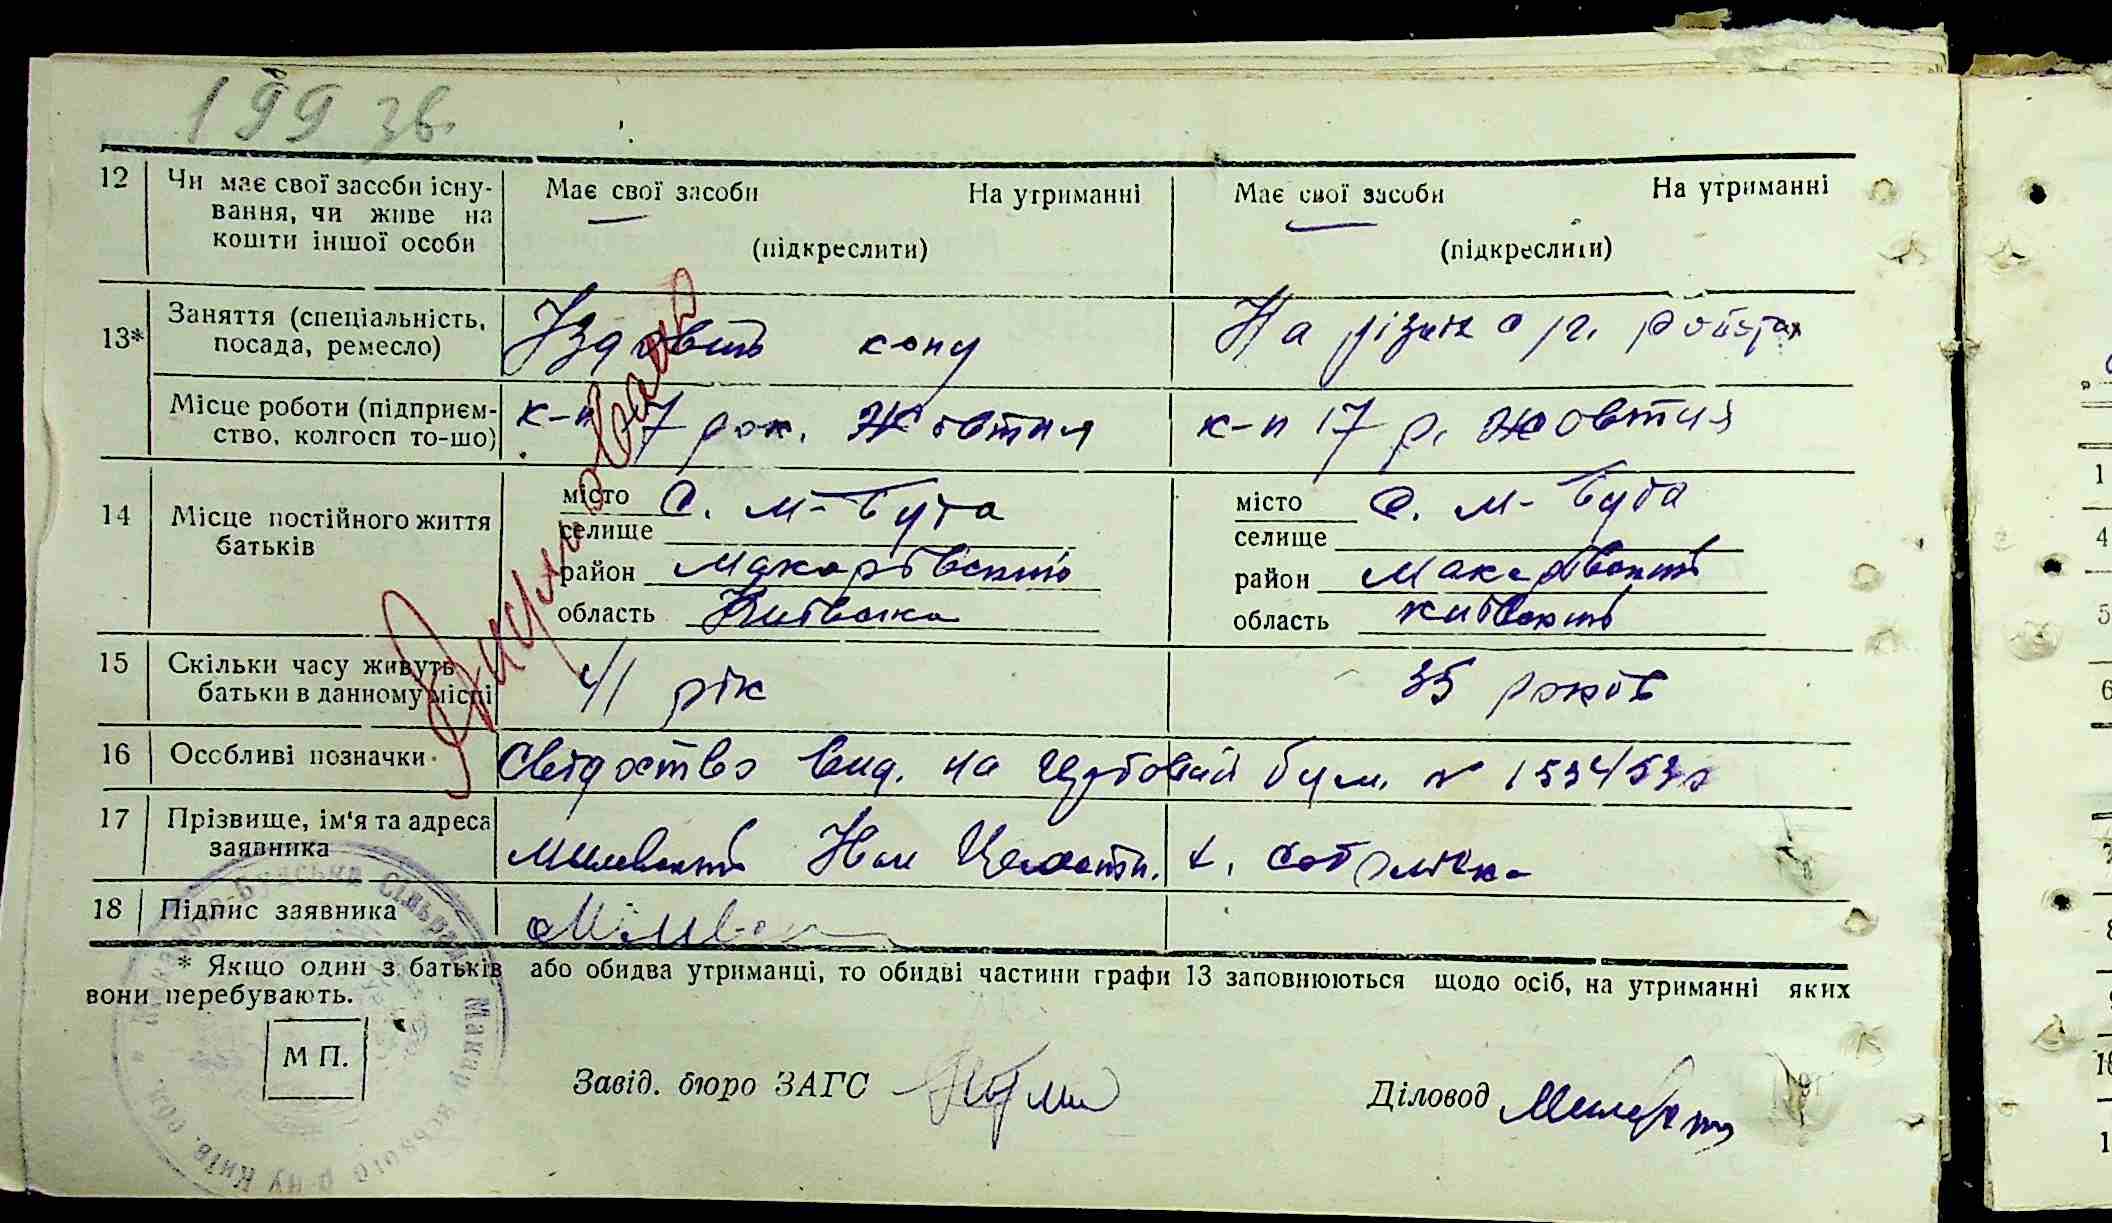 199 зв.
12 Чи має свої засоби існу- Має свої засоби На утриманні Має свої засоби На утриманні
вання, чи живе на
кошти іншої особи (підкреслити) (підкреслити)
13* Заняття (спеціальність, Їздовий кону На різних р. роботах
посада, ремесло)
Місце роботи (підприєм- к-п 17 рок. Жовтня к-п 17 р. Жовтня
ство, колгосп то-що)
14 Місце постійного життя місто С. М-Буда місто С. М-Буда
батьків селище селище
район Макарівський район Макарівський
область Київська область Київській
15 Скільки часу живуть 41 рік 35 років
батьки в данному місці
16 Особливі позначки Свідоство вид. на гербовій бум. № 153453
17 Прізвище, ім'я та адреса Милевський Іван
заявника
18 Підпис заявника
* Якщо один з батьків або обидва утриманці, то обидві частини графи 13 заповнюються щодо осіб, на утриманні яких
вони перебувають.
М П.
Завід. бюро ЗАГС Діловод